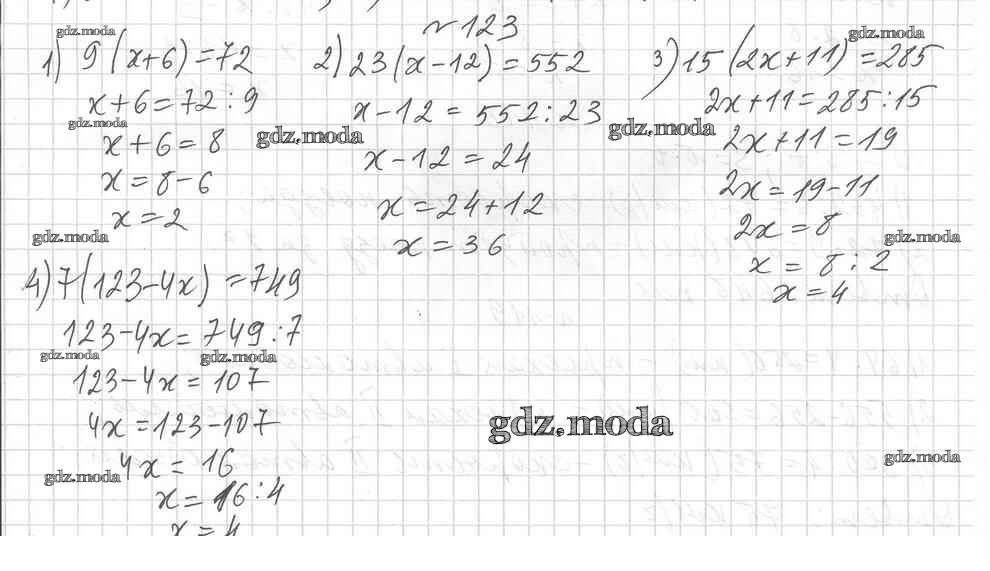 № 123
1) 9(x+6)=72
x+6=72:9
x+6=8
x=8-6
x=2
2) 23(x-12)=552
x-12=552:23
x-12=24
x=24+12
x=36
3) 15(2x+11)=285
2x+11=285:15
2x+11=19
2x=19-11
2x=8
x=8:2
x=4
4) 7(123-4x)=749
123-4x=749:7
123-4x=107
4x=123-107
4x=16
x=16:4
x=4
gdz.moda
gdz.moda
gdz.moda
gdz.moda
gdz.moda
gdz.moda
gdz.moda
gdz.moda
gdz.moda
gdz.moda
gdz.moda
gdz.moda